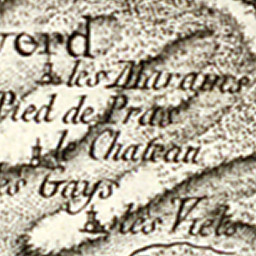 verd
les Marams
Pied de Pras
le Chateau
es Gays
les Viels